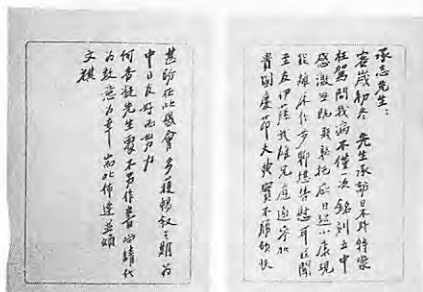 承志先生：
客歲初冬 先生日特蒙
枉駕問我病不僅一次 銘刻五中
感激日趨小康現
能離床作步聊堪告慰耳頃聞
至友伊藤武雄兄應邀參加
貴國慶節大典實不勝欣快
甚盼在此盛會多獲暢敘之期為
中日友好而努力
何香凝先生處不另作書仍請代
為致意為幸耑此佈達並頌
文祺